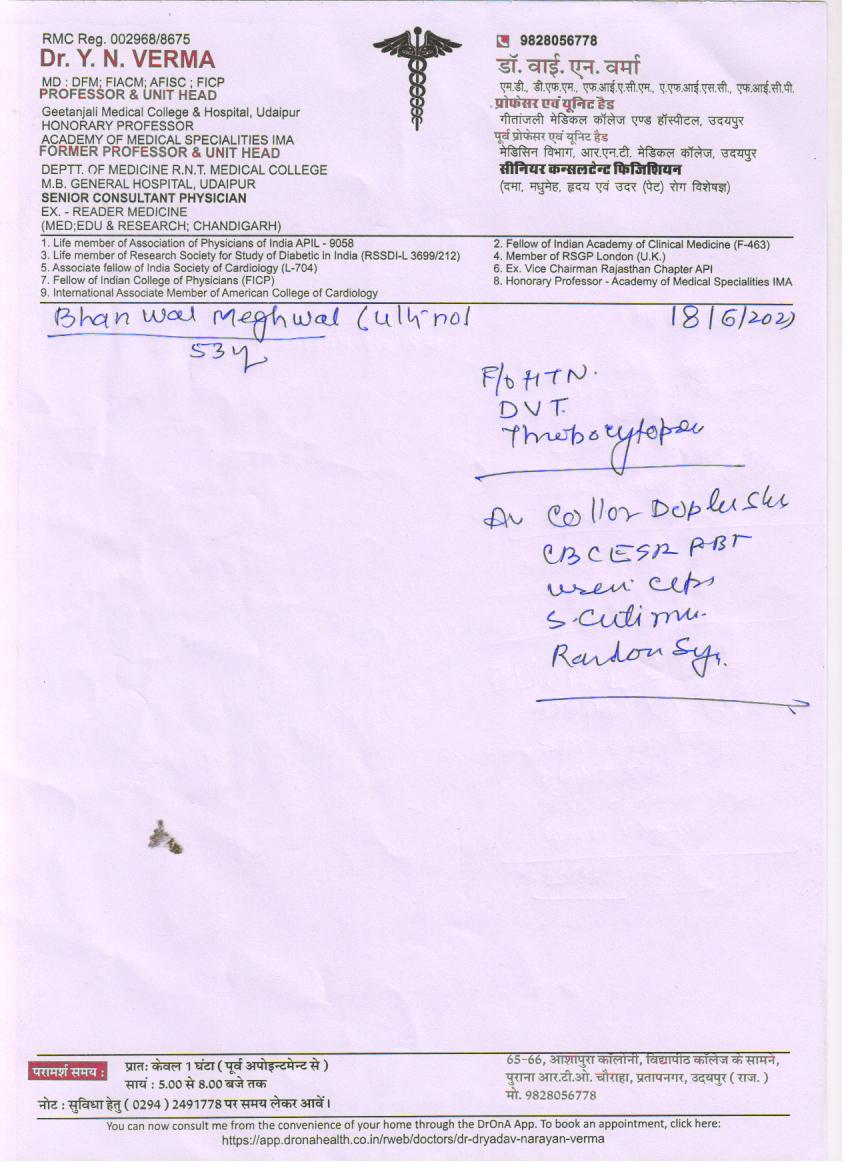 RMC Reg. 002968/8675
Dr. Y. N. VERMA
MD : DFM; FIACM; AFISC ; FICP
PROFESSOR & UNIT HEAD
Geetanjali Medical College & Hospital, Udaipur
HONORARY PROFESSOR
ACADEMY OF MEDICAL SPECIALITIES IMA
FORMER PROFESSOR & UNIT HEAD
DEPTT. OF MEDICINE R.N.T. MEDICAL COLLEGE
M.B. GENERAL HOSPITAL, UDAIPUR
SENIOR CONSULTANT PHYSICIAN
EX. - READER MEDICINE
(MED;EDU & RESEARCH; CHANDIGARH)
9828056778
डॉ. वाई. एन. वर्मा
एम.डी., डी.एफ.एम., एफ.आई.ए.सी.एम., ए.एफ.आई.एस.सी., एफ.आई.सी.पी.
प्रोफेसर एवं यूनिट हैड
गीतांजली मेडिकल कॉलेज एण्ड हॉस्पीटल, उदयपुर
पूर्व प्रोफेसर एवं यूनिट हैड
मेडिसिन विभाग, आर.एन.टी. मेडिकल कॉलेज, उदयपुर
सीनियर कन्सलटेन्ट फिजिशियन
(दमा, मधुमेह, हृदय एवं उदर (पेट) रोग विशेषज्ञ)
1. Life member of Association of Physicians of India APIL - 9058
3. Life member of Research Society for Study of Diabetic in India (RSSDI-L 3699/212)
5. Associate fellow of India Society of Cardiology (L-704)
7. Fellow of Indian College of Physicians (FICP)
9. International Associate Member of American College of Cardiology
2. Fellow of Indian Academy of Clinical Medicine (F-463)
4. Member of RSGP London (U.K.)
6. Ex. Vice Chairman Rajasthan Chapter API
8. Honorary Professor - Academy of Medical Specialities IMA
Bhan wal Meghwal
18/6/202
53y
F/o HTN.
DVT.
Collor Dopler
CBC ESR
Random
परामर्श समय :
प्रातः केवल 1 घंटा ( पूर्व अपोइन्टमेन्ट से )
सायं : 5.00 से 8.00 बजे तक
नोट : सुविधा हेतु ( 0294 ) 2491778 पर समय लेकर आवें।
65-66, आशापुरा कॉलोनी, विद्यापीठ कॉलेज के सामने,
पुराना आर.टी.ओ. चौराहा, प्रतापनगर, उदयपुर ( राज. )
मो. 9828056778
You can now consult me from the convenience of your home through the DrOnA App. To book an appointment, click here:
https://app.dronahealth.co.in/rweb/doctors/dr-dryadav-narayan-verma